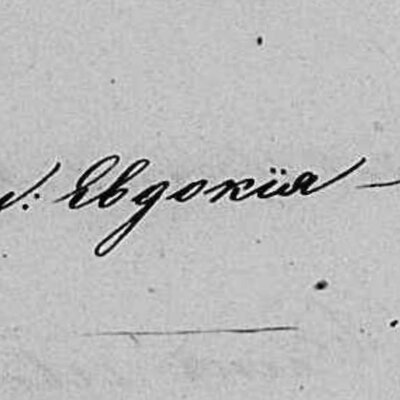 Евдокія